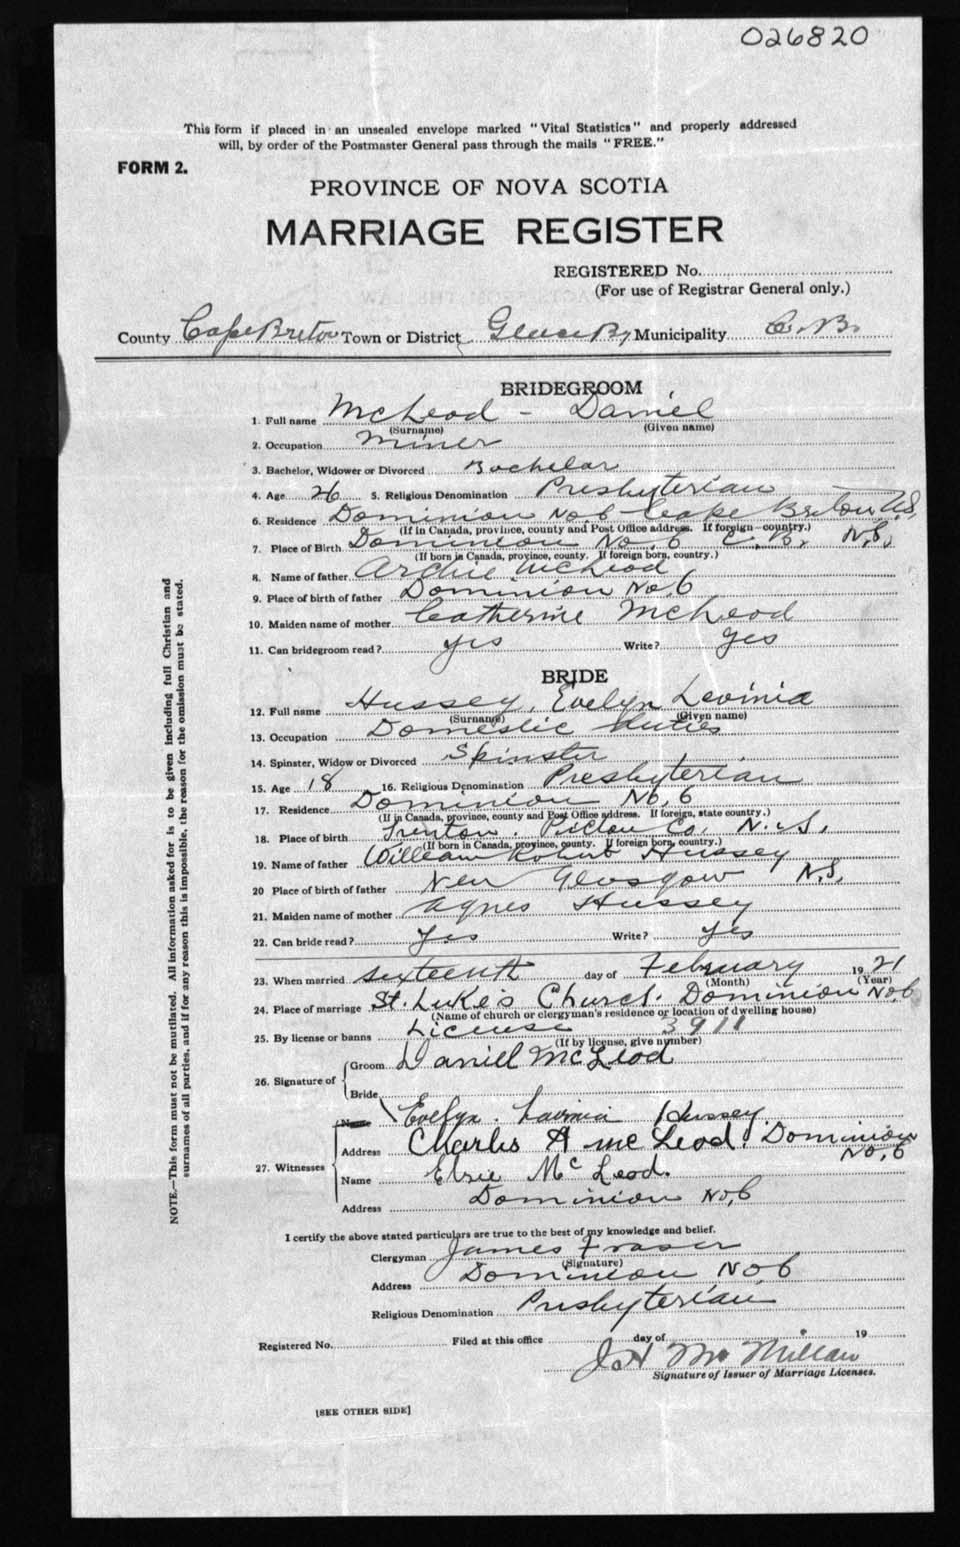 026820
This form if placed in an unsealed envelope marked "Vital Statistics" and properly addressed
will, by order of the Postmaster General pass through the mails "FREE."
FORM 2.
PROVINCE OF NOVA SCOTIA
MARRIAGE REGISTER
REGISTERED No.
(For use of Registrar General only.)
County Cape Breton Town or District Glace Bay Municipality C. B.
BRIDEGROOM
1. Full name McLeod - Daniel
(Surname) (Given name)
2. Occupation Miner
3. Bachelor, Widower or Divorced Bachelor
4. Age 26 5. Religious Denomination Presbyterian
6. Residence Dominion No. 6 Cape Breton N.S.
(If in Canada, province, county and Post Office address. If foreign country.)
7. Place of Birth Dominion No. 6 C. B. N.S.
(If born in Canada, province, county. If foreign born, country.)
8. Name of father Archie McLeod
9. Place of birth of father Dominion No. 6
10. Maiden name of mother Catherine McLeod
11. Can bridegroom read? yes Write? yes
BRIDE
12. Full name Hussey, Evelyn Levinia
(Surname) (Given name)
13. Occupation Domestic Duties
14. Spinster, Widow or Divorced Spinster
15. Age 18 16. Religious Denomination Presbyterian
17. Residence Dominion No. 6
(If in Canada, province, county and Post Office address. If foreign, state country.)
18. Place of birth Trenton. Pictou Co. N.S.
(If born in Canada, province, county. If foreign born, country.)
19. Name of father William Robert Hussey
20 Place of birth of father New Glasgow N.S.
21. Maiden name of mother Agnes Hussey
22. Can bride read? Yes Write? yes
23. When married sixteenth day of February 1921
(Month) (Year)
24. Place of marriage St. Luke's Church. Dominion No 6
(Name of church or clergyman's residence or location of dwelling house)
25. By license or banns License 3911
(If by license, give number)
26. Signature of
Groom Daniel McLeod
Bride
Name Evelyn. Lavinia Hussey.
27. Witnesses
Address Charles A McLeod. Dominion
No. 6
Name Elsie McLeod.
Address Dominion No. 6
I certify the above stated particulars are true to the best of my knowledge and belief.
Clergyman James Fraser
(Signature)
Address Dominion No 6
Religious Denomination Presbyterian
Registered No. Filed at this office day of 19
J. H. McMillan
Signature of Issuer of Marriage Licenses.
[SEE OTHER SIDE]
NOTE.—This form must not be mutilated. All information asked for is to be given including full Christian and
surnames of all parties, and if for any reason this is impossible, the reason for the omission must be stated.